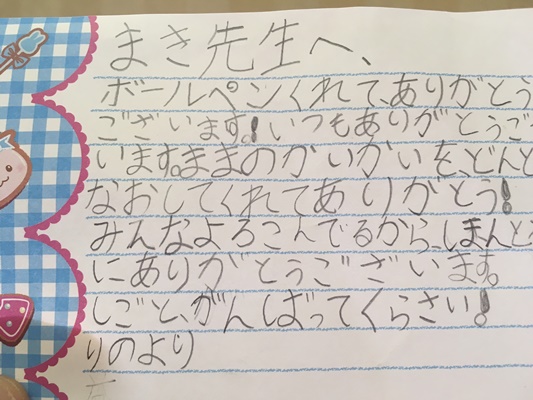 まき先生へ、
ボールペンくれて、ありがとう
ございます。!いつもありがとうご
います。ままのかいかいを、どんど
なおしてくれてありがとう!
みんなよろこんでるから、しまんと
にありがとうございます。
しごと、がんばってくらさい!
りのより